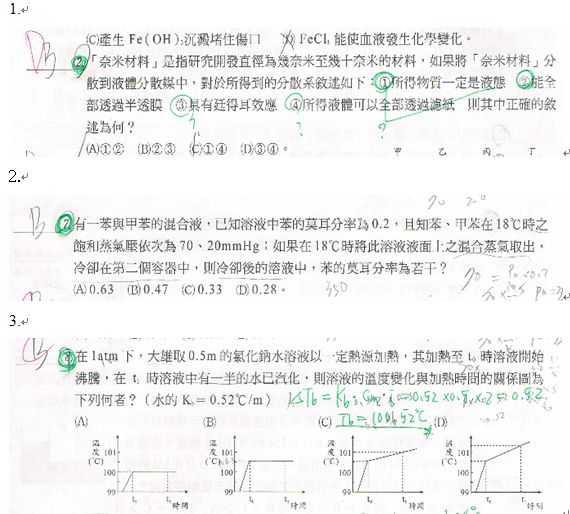 1.
D
(C)產生 Fe(OH)₃沉澱堵住傷口 (D) FeCl₃能使血液發生化學變化。
2. 「奈米材料」是指研究開發直徑為幾奈米至幾十奈米的材料，如果將「奈米材料」分
散到液體分散媒中，對於所得到的分散系敘述如下：①所得物質一定是液態 ②能全
部透過半透膜 ③具有廷得耳效應 ④所得液體可以全部透過濾紙 則其中正確的敘
述為何？
? ? ?
(A)①② (B)②③ (C)①④ (D)③④。
甲 乙 丙 丁
2.
B
7. 有一苯與甲苯的混合液，已知溶液中苯的莫耳分率為 0.2，且知苯、甲苯在 18℃時之
飽和蒸氣壓依次為 70、20mmHg；如果在 18℃時將此溶液液面上之混合蒸氣取出，
冷卻在第二個容器中，則冷卻後的溶液中，苯的莫耳分率為若干？
(A) 0.63 (B) 0.47 (C) 0.33 (D) 0.28。
350
3.
在 1atm 下，大雄取 0.5m 的氯化鈉水溶液以一定熱源加熱，其加熱至 t₀ 時溶液開始
沸騰，在 t₁ 時溶液中有一半的水已汽化，則溶液的溫度變化與加熱時間的關係圖為
下列何者？（水的 K_b = 0.52℃/m）
Tb = 100.52℃
(A) (B) (C) (D)
溫度(℃) 101 100 99 t₀ t₁ 時間
溫度(℃) 101 100 99 t₀ t₁ 時間
溫度(℃) 101 100 99 t₀ t₁ 時間
溫度(℃) 101 100 99 t₀ t₁ 時間